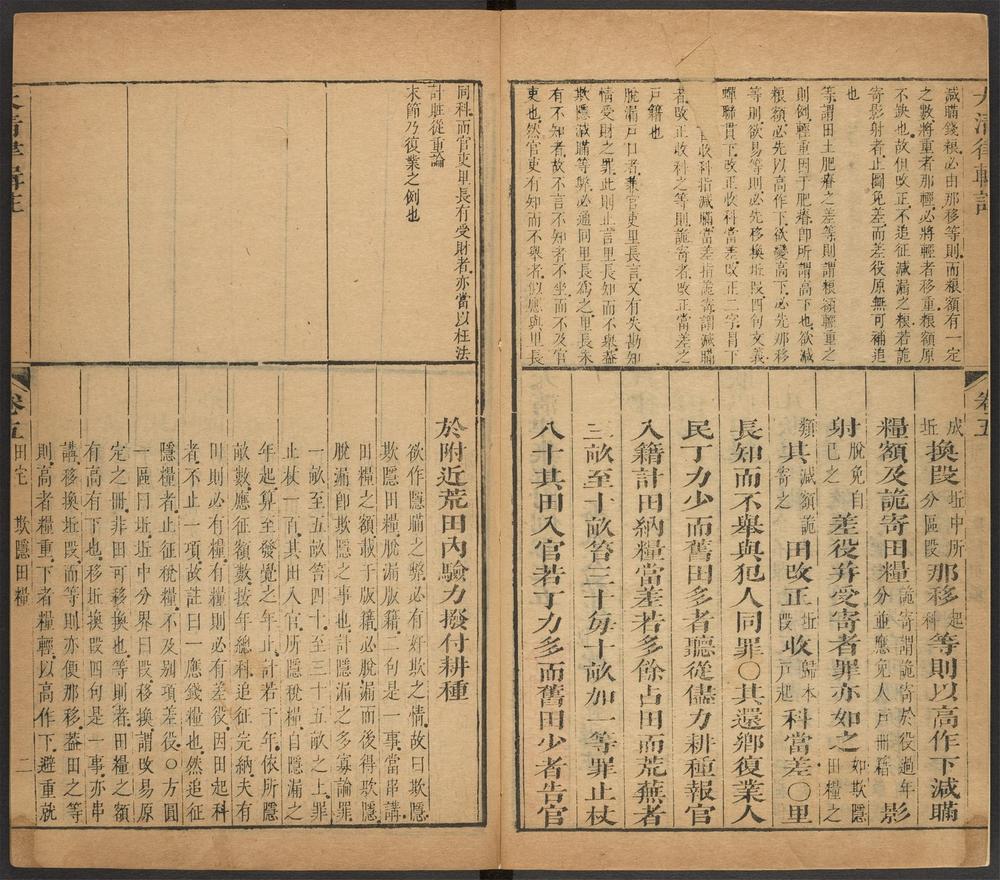 大清律輯註
減瞞錢糧必由那移等則而糧額有一定
之數將重者那輕必將輕者移重糧額原
不缺也故但改正不追征減漏之糧若詭
寄影射者止圖免差而差役原無可補追
也
等謂田土肥瘠之差等則謂糧額輕重之
則例輕重因于肥瘠卽所謂高下也欲減
糧額必先以高作下欲變高下必先那移
等則欲易等則必先移換坵段四句文義
蟬聯貫下改正收科當差改正二字冒下
收科指減瞞當差指詭寄謂減瞞
者改正收科之等則詭寄者改正當差之
戶籍也
脫漏戶口者兼官吏里長言又有失勘知
情受財之罪此則止言里長知而不舉葢
欺隱減瞞等弊必通同里長爲之里長未
有不知者故不言不知者不坐而不及官
吏也然官吏有知而不舉者似應與里長
卷五
成坵換段坵中所分區段那移起科等則以高作下減瞞
糧額及詭寄田糧詭寄謂詭寄於役過年分並應免人戶冊籍影
射脫免自己之差役并受寄者罪亦如之如欺隱田糧之
類其減額詭寄之田改正坵段收歸本戶起科當差〇里
長知而不舉與犯人同罪〇其還鄉復業人
民丁力少而舊田多者聽從儘力耕種報官
入籍計田納糧當差若多餘占田而荒蕪者
三畝至十畝笞三十每十畝加一等罪止杖
八十其田入官若丁力多而舊田少者告官
同科而官吏里長有受財者亦當以枉法
計贓從重論
末節乃復業之例也
於附近荒田內驗力撥付耕種
欲作隱瞞之弊必有奸欺之情故曰欺隱
欺隱田糧脫漏版籍二句是一事當串講
田糧之額載于版籍必脫漏而後得欺隱
脫漏卽欺隱之事也計隱漏之多寡論罪
一畝至五畝笞四十至三十五畝之上罪
止杖一百其田入官所隱稅糧自隱漏之
年起算至發覺之年止計若干年依所隱
畝數應征額數按年總科追征完納夫有
田則必有糧有糧則必有差役因田起科
者不止一項故註曰一應錢糧也然追征
隱糧者止征稅糧不及別項差役〇方圓
一區曰坵坵中分界曰段移換謂改易原
定之冊非田可移換也等則者田糧之額
有高有下也移坵換段四句是一事亦串
講移換坵段而等則亦便那移葢田之等
則高者糧重下者糧輕以高作下避重就
大清律輯註
卷五
田宅
欺隱田糧
二